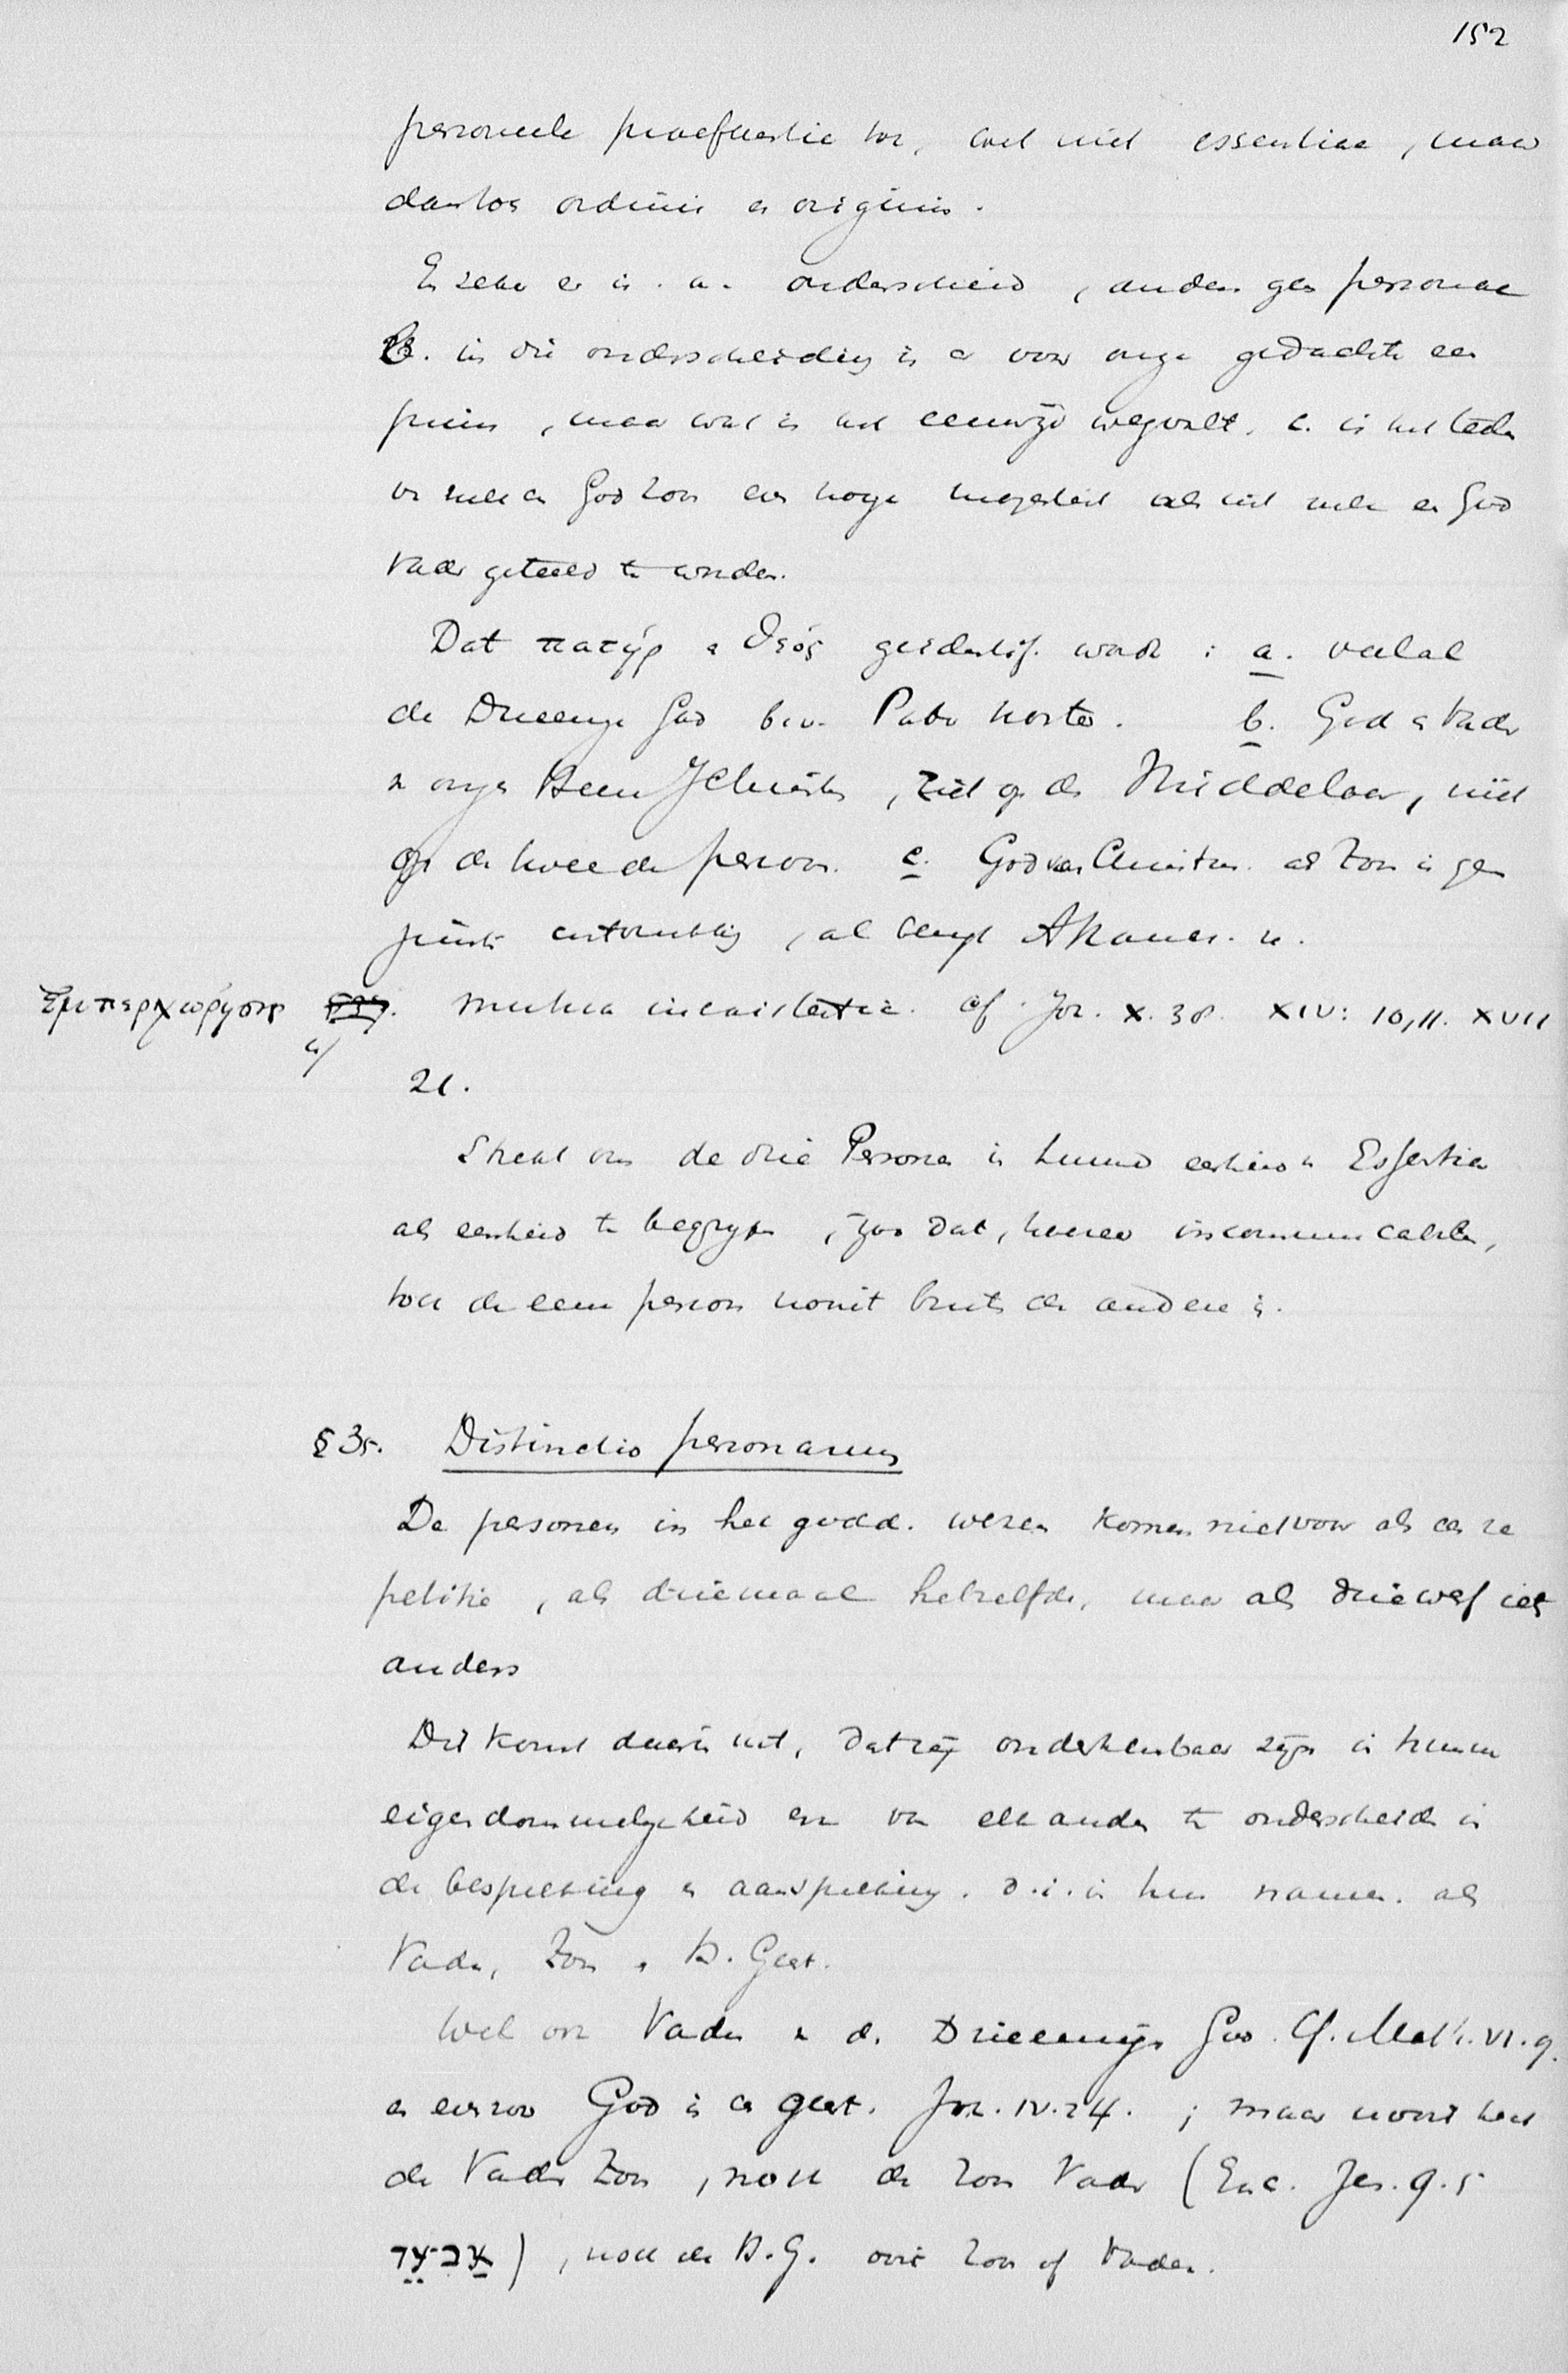 152
personeele praeferentie toe, wel niet essentiae, maar
dan toch ordinis en originis.
En zelve er is a. onderscheid, anders geen personae
B. in die onderscheiding is er voor onze gedachte een
prius, maar wat in het eeuwige wegvalt. c. is het telen
en God Zoon even hooge majesteit als het en God
Vader geteeld te worden.
Dat πατήρ θεός wordt : a. veelal
de Drieenige God bev. Pater noster. b. God en Vader
v onzen Heer JChristus, ziet op den Middelaar, niet
op de tweede persoon. c. God van Christus als Zoon is geen
juiste uitdrukking, al
Ἐμπεριχώρησις §34. mutua inexistentie. cf. Joh. X.38. XIV: 10,11. XVII
21.
Strekt om de drie Personen in hunne eenheid Essentia
als eenheid te begrijpen, zoo dat, hoezeer incommunicabel,
toch de eene persoon nooit buiten de andere is.
§ 35. Distinctio personarum
De personen in het godd. wezen komen niet voor als een re
petitie, als driemaal hetzelfde, maar als driewerf iets
anders
Dit komt daarin uit, dat zij onderkenbaar zijn in hunne
eigendommelijkheid en van elkander te onderscheiden in
de bespreking en aanspreking. d.i. in hun namen. als
Vader, Zoon en H. Geest.
Wel onze Vader v. d. Drieenigen God. Cf. Math. VI.9.
en evenzoo God is een geest. Joh. IV.24. ; maar nooit heet
de Vader Zoon, noch de Zoon Vader (Exc. Jes. 9.5
אֲבִי־עַד), noch de H.G. ooit Zoon of Vader.